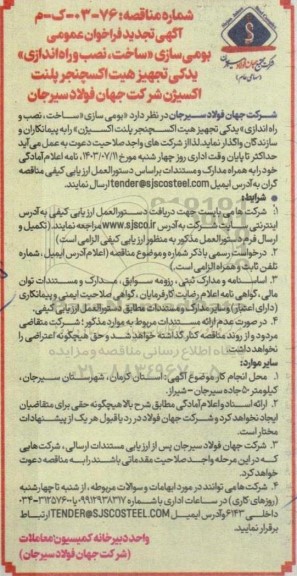 شماره مناقصه: ۷۶-۰۳-ک-م
آگهی تجدید فراخوان عمومی
بومی سازی «ساخت، نصب و راه اندازی»
یدکی تجهیز هیت اکسچنجر پلنت
اکسیژن شرکت جهان فولاد سیرجان
شرکت جهان فولاد سیرجان
(سهامی عام)
شرکت جهان فولاد سیرجان در نظر دارد «بومی سازی «ساخت، نصب و
راه اندازی» یدکی تجهیز هیت اکسچنجر پلنت اکسیژن» را به پیمانکاران و
سازندگان واگذار نماید. لذا از شرکت های واجد صلاحیت دعوت به عمل می آید
حداکثر تا پایان وقت اداری روز چهار شنبه مورخ ۱۴۰۳/۰۷/۱۱، نامه اعلام آمادگی
خود را به همراه مدارک و مستندات بر اساس دستورالعمل ارزیابی کیفی مناقصه
گران به آدرس ایمیل tender@sjscosteel.com ارسال نمایند.
شرایط:
۱. شرکت ها می بایست جهت دریافت دستورالعمل ارزیابی کیفی به آدرس
اینترنتی سایت شرکت به آدرس www.sjsco.ir مراجعه نمایند. (تکمیل و
ارسال فرم دستورالعمل مذکور به منظور ارزیابی کیفی الزامی است)
۲. درخواست رسمی با ذکر شماره و موضوع مناقصه (اعلام آدرس ایمیل، شماره
تلفن ثابت و همراه الزامی است.)
۳. اساسنامه و مدارک ثبتی، رزومه، سوابق، مدارک و مستندات توان
مالی، گواهی نامه اعلام رضایت کارفرمایان، گواهی صلاحیت ایمنی و پیمانکاری
(دارای اعتبار) و سایر مدارک و مستندات مطابق دستورالعمل ارزیابی کیفی.
۴. در صورت عدم ارائه مستندات مربوط به موارد مذکور؛ شرکت متقاضی
مردود و از روند مناقصه کنار گذاشته خواهد شد و حق هیچگونه اعتراضی را
نخواهد داشت.
سایر موارد:
۱. محل انجام کار موضوع آگهی: استان کرمان، شهرستان سیرجان،
کیلومتر ۵۰ جاده سیرجان - شیراز.
۲. ارائه اسناد و اعلام آمادگی مطابق شرح بالا هیچگونه حقی برای متقاضیان
ایجاد نخواهد کرد و شرکت جهان فولاد در رد یا قبول هر یک از پیشنهادات
مختار است.
۳. شرکت جهان فولاد سیرجان پس از ارزیابی مستندات ارسالی، شرکت هایی
که در این مرحله واجد صلاحیت مقدماتی باشند را به مناقصه دعوت
خواهد کرد.
۴. شرکت ها می توانند در مورد ابهامات و سوالات مربوطه، از شنبه تا چهارشنبه
(روزهای کاری) در ساعات اداری با شماره ۰۹۹۱۲۹۳۸۳۱۷ یا ۳۱۲۵۷۶-۰۳۴
داخلی ۶۱۴۳ و آدرس ایمیل TENDER@SJSCOSTEEL.COM ارتباط
برقرار نمایند.
واحد دبیرخانه کمیسیون معاملات
(شرکت جهان فولاد سیرجان)